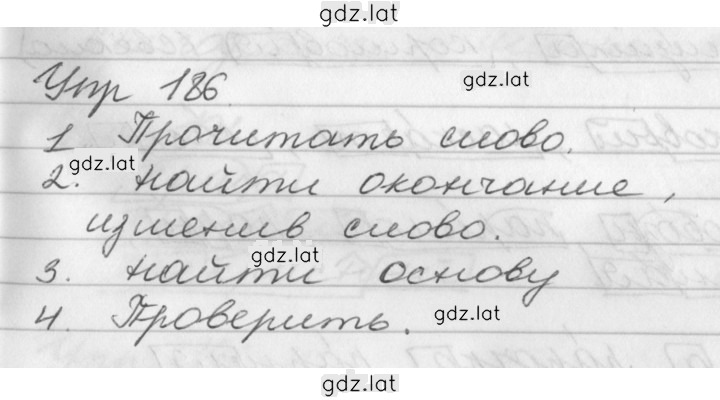 gdz.lat
Упр 186.
gdz.lat
1 Прочитать слово.
gdz.lat
2. Найти окончание,
изменив слово.
gdz.lat
3. Найти основу
4. Проверить.
gdz.lat
gdz.lat